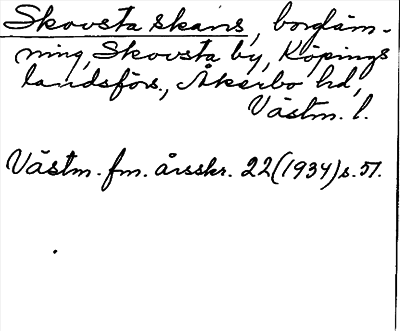 Skovsta skans, borgläm-
ning, Skovsta by, Köpings
landsförs., Åkerbo hd,
Västm. l.
Västm. fm. årsskr. 22 (1934) s. 51.